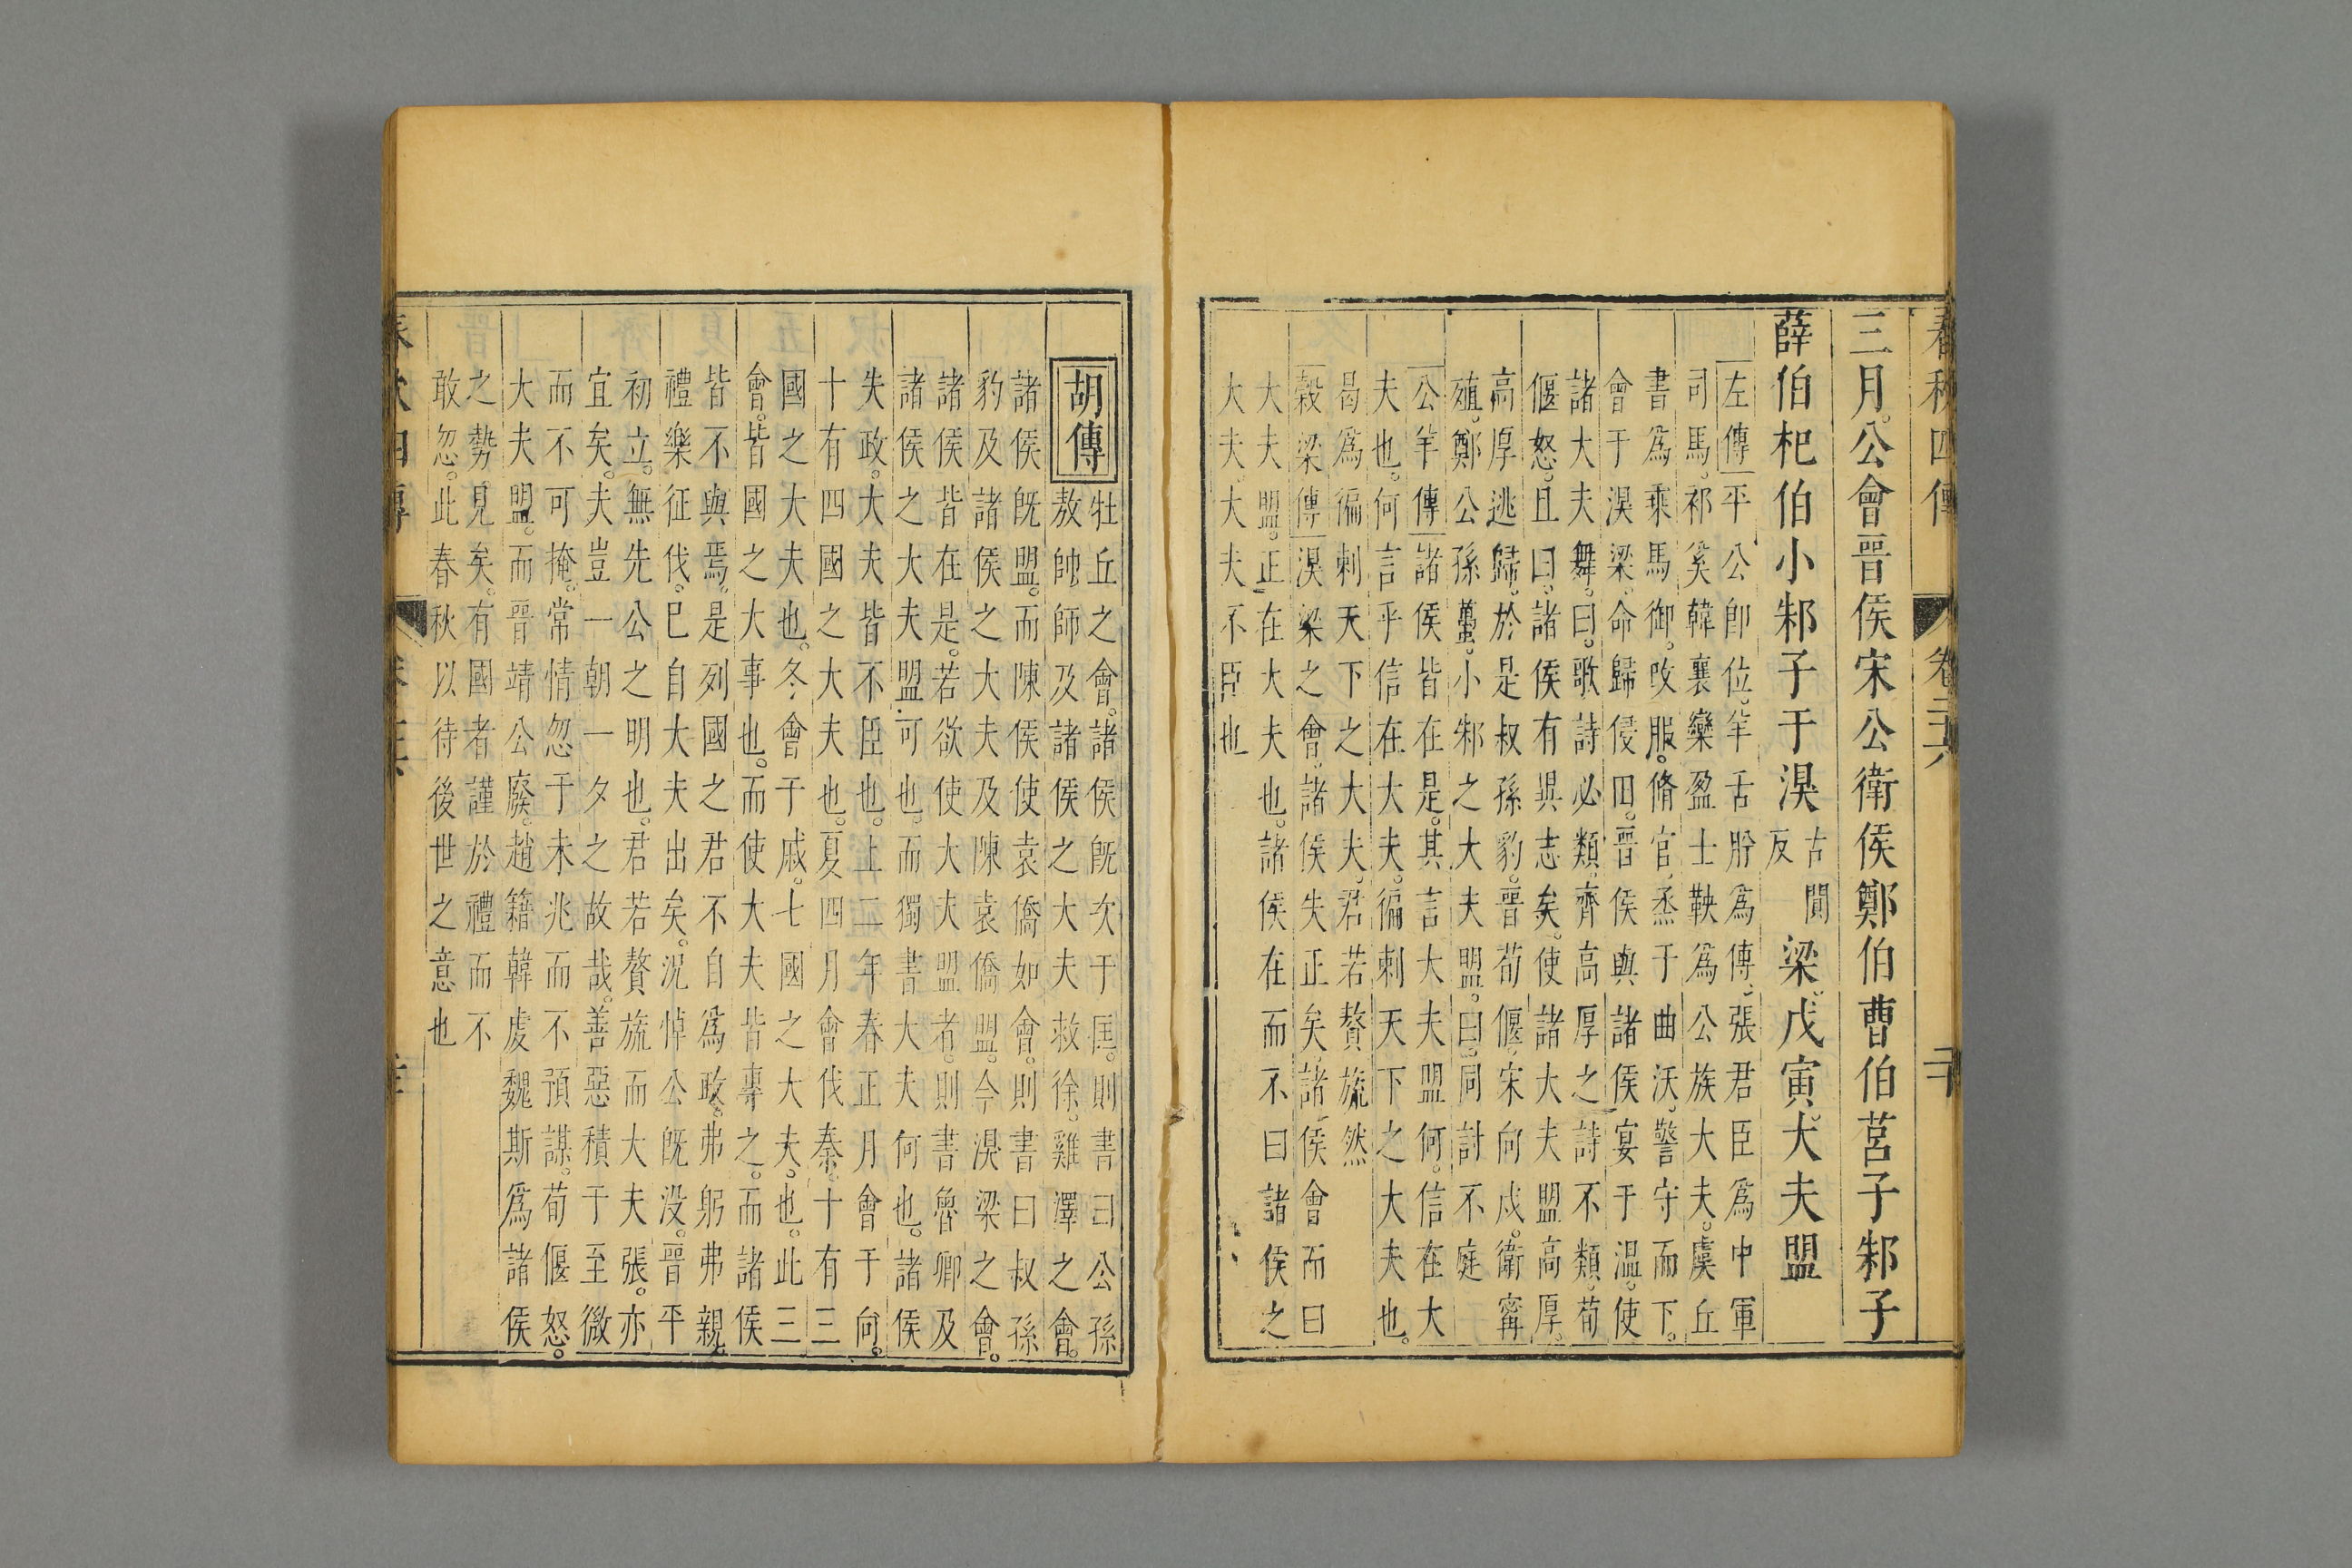 春秋四傳 卷二六
三月公會晉侯宋公衛侯鄭伯曹伯莒子邾子
薛伯杞伯小邾子于湨古閴反梁戊寅大夫盟
左傳平公即位羊舌肸爲傅張君臣爲中軍
司馬祁奚韓襄欒盈士鞅爲公族大夫虞丘
書爲乘馬御改服脩官烝于曲沃警守而下
會于湨梁命歸侵田晉侯與諸侯宴于溫使
諸大夫舞曰歌詩必類齊高厚之詩不類荀
偃怒且曰諸侯有異志矣使諸大夫盟高厚
高厚逃歸於是叔孫豹晉荀偃宋向戌衛甯
殖鄭公孫蠆小邾之大夫盟曰同討不庭
公羊傳諸侯皆在是其言大夫盟何信在大
夫也何言乎信在大夫徧刺天下之大夫也
曷爲徧刺天下之大夫君若贅旒然
穀梁傳湨梁之會諸侯失正矣諸侯會而曰
大夫盟正在大夫也諸侯在而不曰諸侯之
大夫大夫不臣也
胡傳牡丘之會諸侯既次于匡則書曰公孫
敖帥師及諸侯之大夫救徐雞澤之會
諸侯既盟而陳侯使袁僑如會則書曰叔孫
豹及諸侯之大夫及陳袁僑盟今湨梁之會
諸侯皆在是若欲使大夫盟者則書魯卿及
諸侯之大夫盟可也而獨書大夫何也諸侯
失政大夫皆不臣也上二年春正月會于向
十有四國之大夫也夏四月會伐秦十有三
國之大夫也冬會于戚七國之大夫也此三
會皆國之大事也而使大夫皆專之而諸侯
皆不與焉是列國之君不自爲政弗躬弗親
禮樂征伐已自大夫出矣況悼公既没晉平
初立無先公之明也君若贅旒而大夫張亦
宜矣夫豈一朝一夕之故哉善惡積于至微
而不可掩常情忽于未兆而不預謀荀偃怒
大夫盟而晉靖公廢趙籍韓虔魏斯爲諸侯
之勢見矣有國者謹於禮而不
敢忽此春秋以待後世之意也